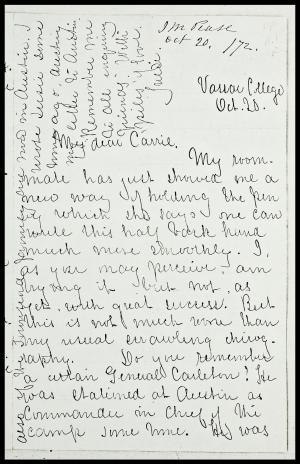 J M Pease
Oct 20, /72.
Vassar College
Oct. 20.
My dear Carrie,
My room-
mate has just showed me a
new way of holding the pen
by which she says one can
write this half back hand
much more smoothly. I,
as you may perceive, am
trying it but not, as
yet, with great success. But
this is not much worse than
my usual scrawling chirog-
raphy. Do you remember
a certain General Carleton? He
was stationed at Austin as
Commander in Chief of the
camp some time. He was
in Austin. I
wrote Susie some
time ago.
Remember me
to all enquiring
friends. With
piles of love
Julie.